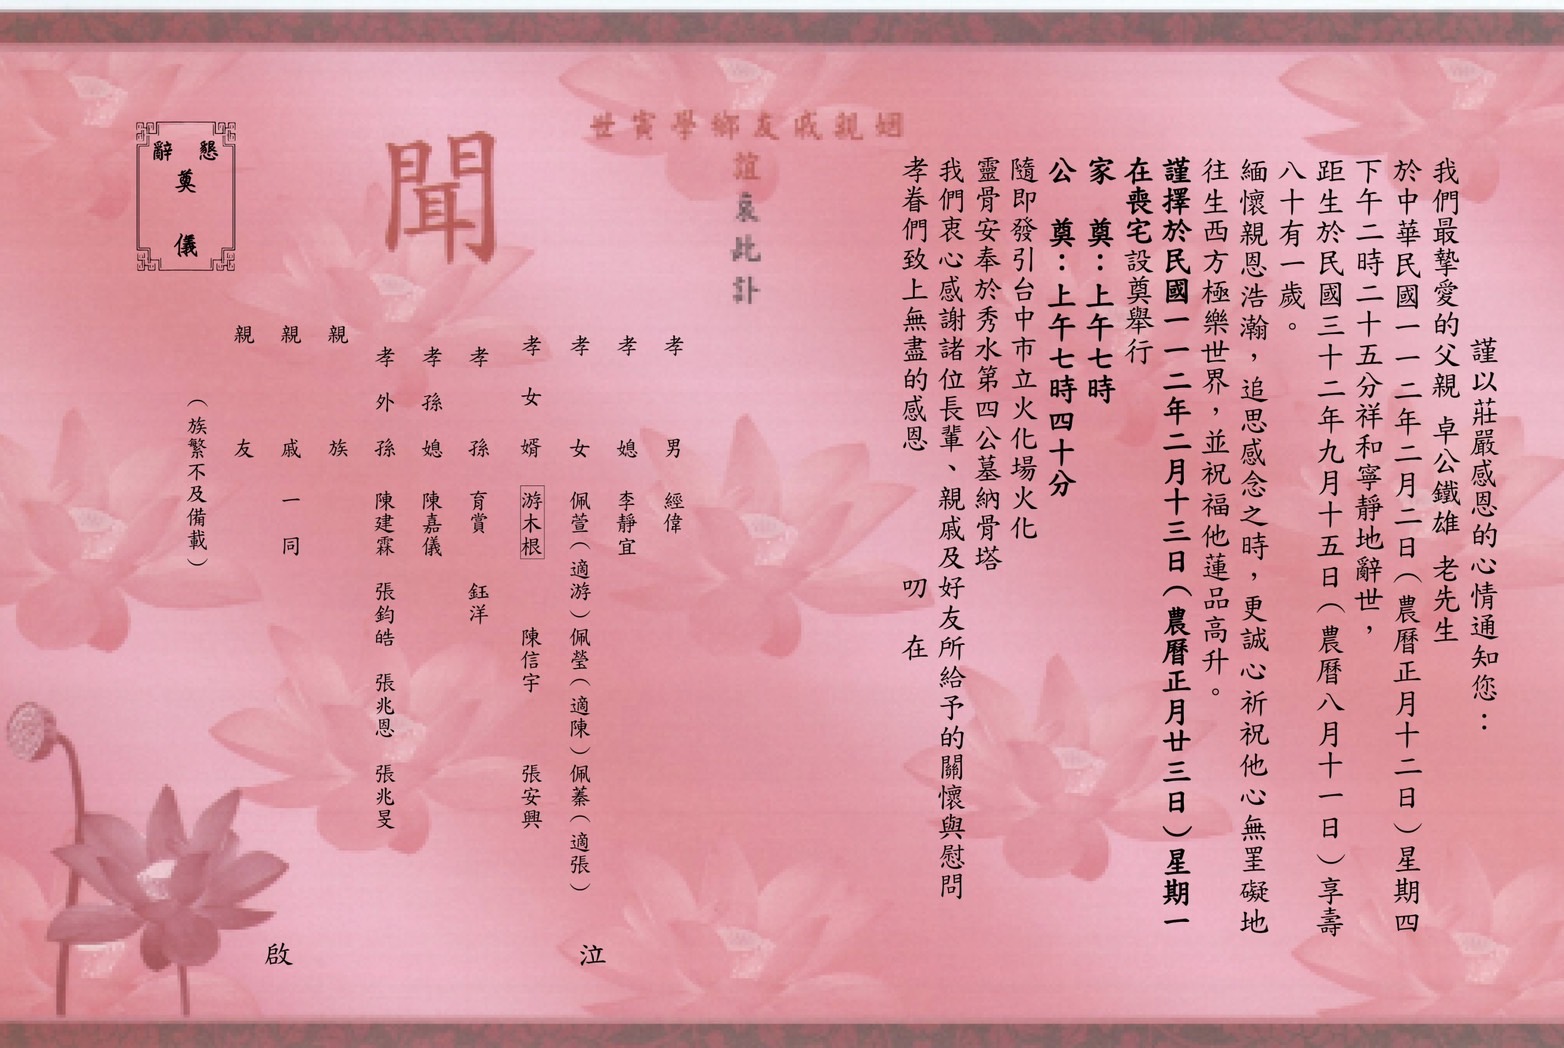 謹以莊嚴感恩的心情通知您：
我們最摯愛的父親 卓公鐵雄 老先生
於中華民國一一二年二月二日（農曆正月十二日）星期四
下午二時二十五分祥和寧靜地辭世，
距生於民國三十二年九月十五日（農曆八月十一日）享壽
八十有一歲。
緬懷親恩浩瀚，追思感念之時，更誠心祈祝他心無罣礙地
往生西方極樂世界，並祝福他蓮品高升。
謹擇於民國一一二年二月十三日（農曆正月廿三日）星期一
在喪宅設奠舉行
家 奠：上午七時
公 奠：上午七時四十分
隨即發引台中市立火化場火化
靈骨安奉於秀水第四公墓納骨塔
我們衷心感謝諸位長輩、親戚及好友所給予的關懷與慰問
孝眷們致上無盡的感恩 叨 在
姻親戚友鄉學寅世
誼哀此訃
聞
孝 男 經偉
孝 媳 李靜宜
孝 女 佩萱（適游）佩瑩（適陳）佩蓁（適張）
孝女婿 游木根 陳信宇 張安興
孝 孫 育賞 鈺洋
孝孫媳 陳嘉儀
孝外孫 陳建霖 張鈞皓 張兆恩 張兆旻
泣
親 族
親 戚 一 同
親 友
（族繁不及備載）
啟
懇辭
奠儀